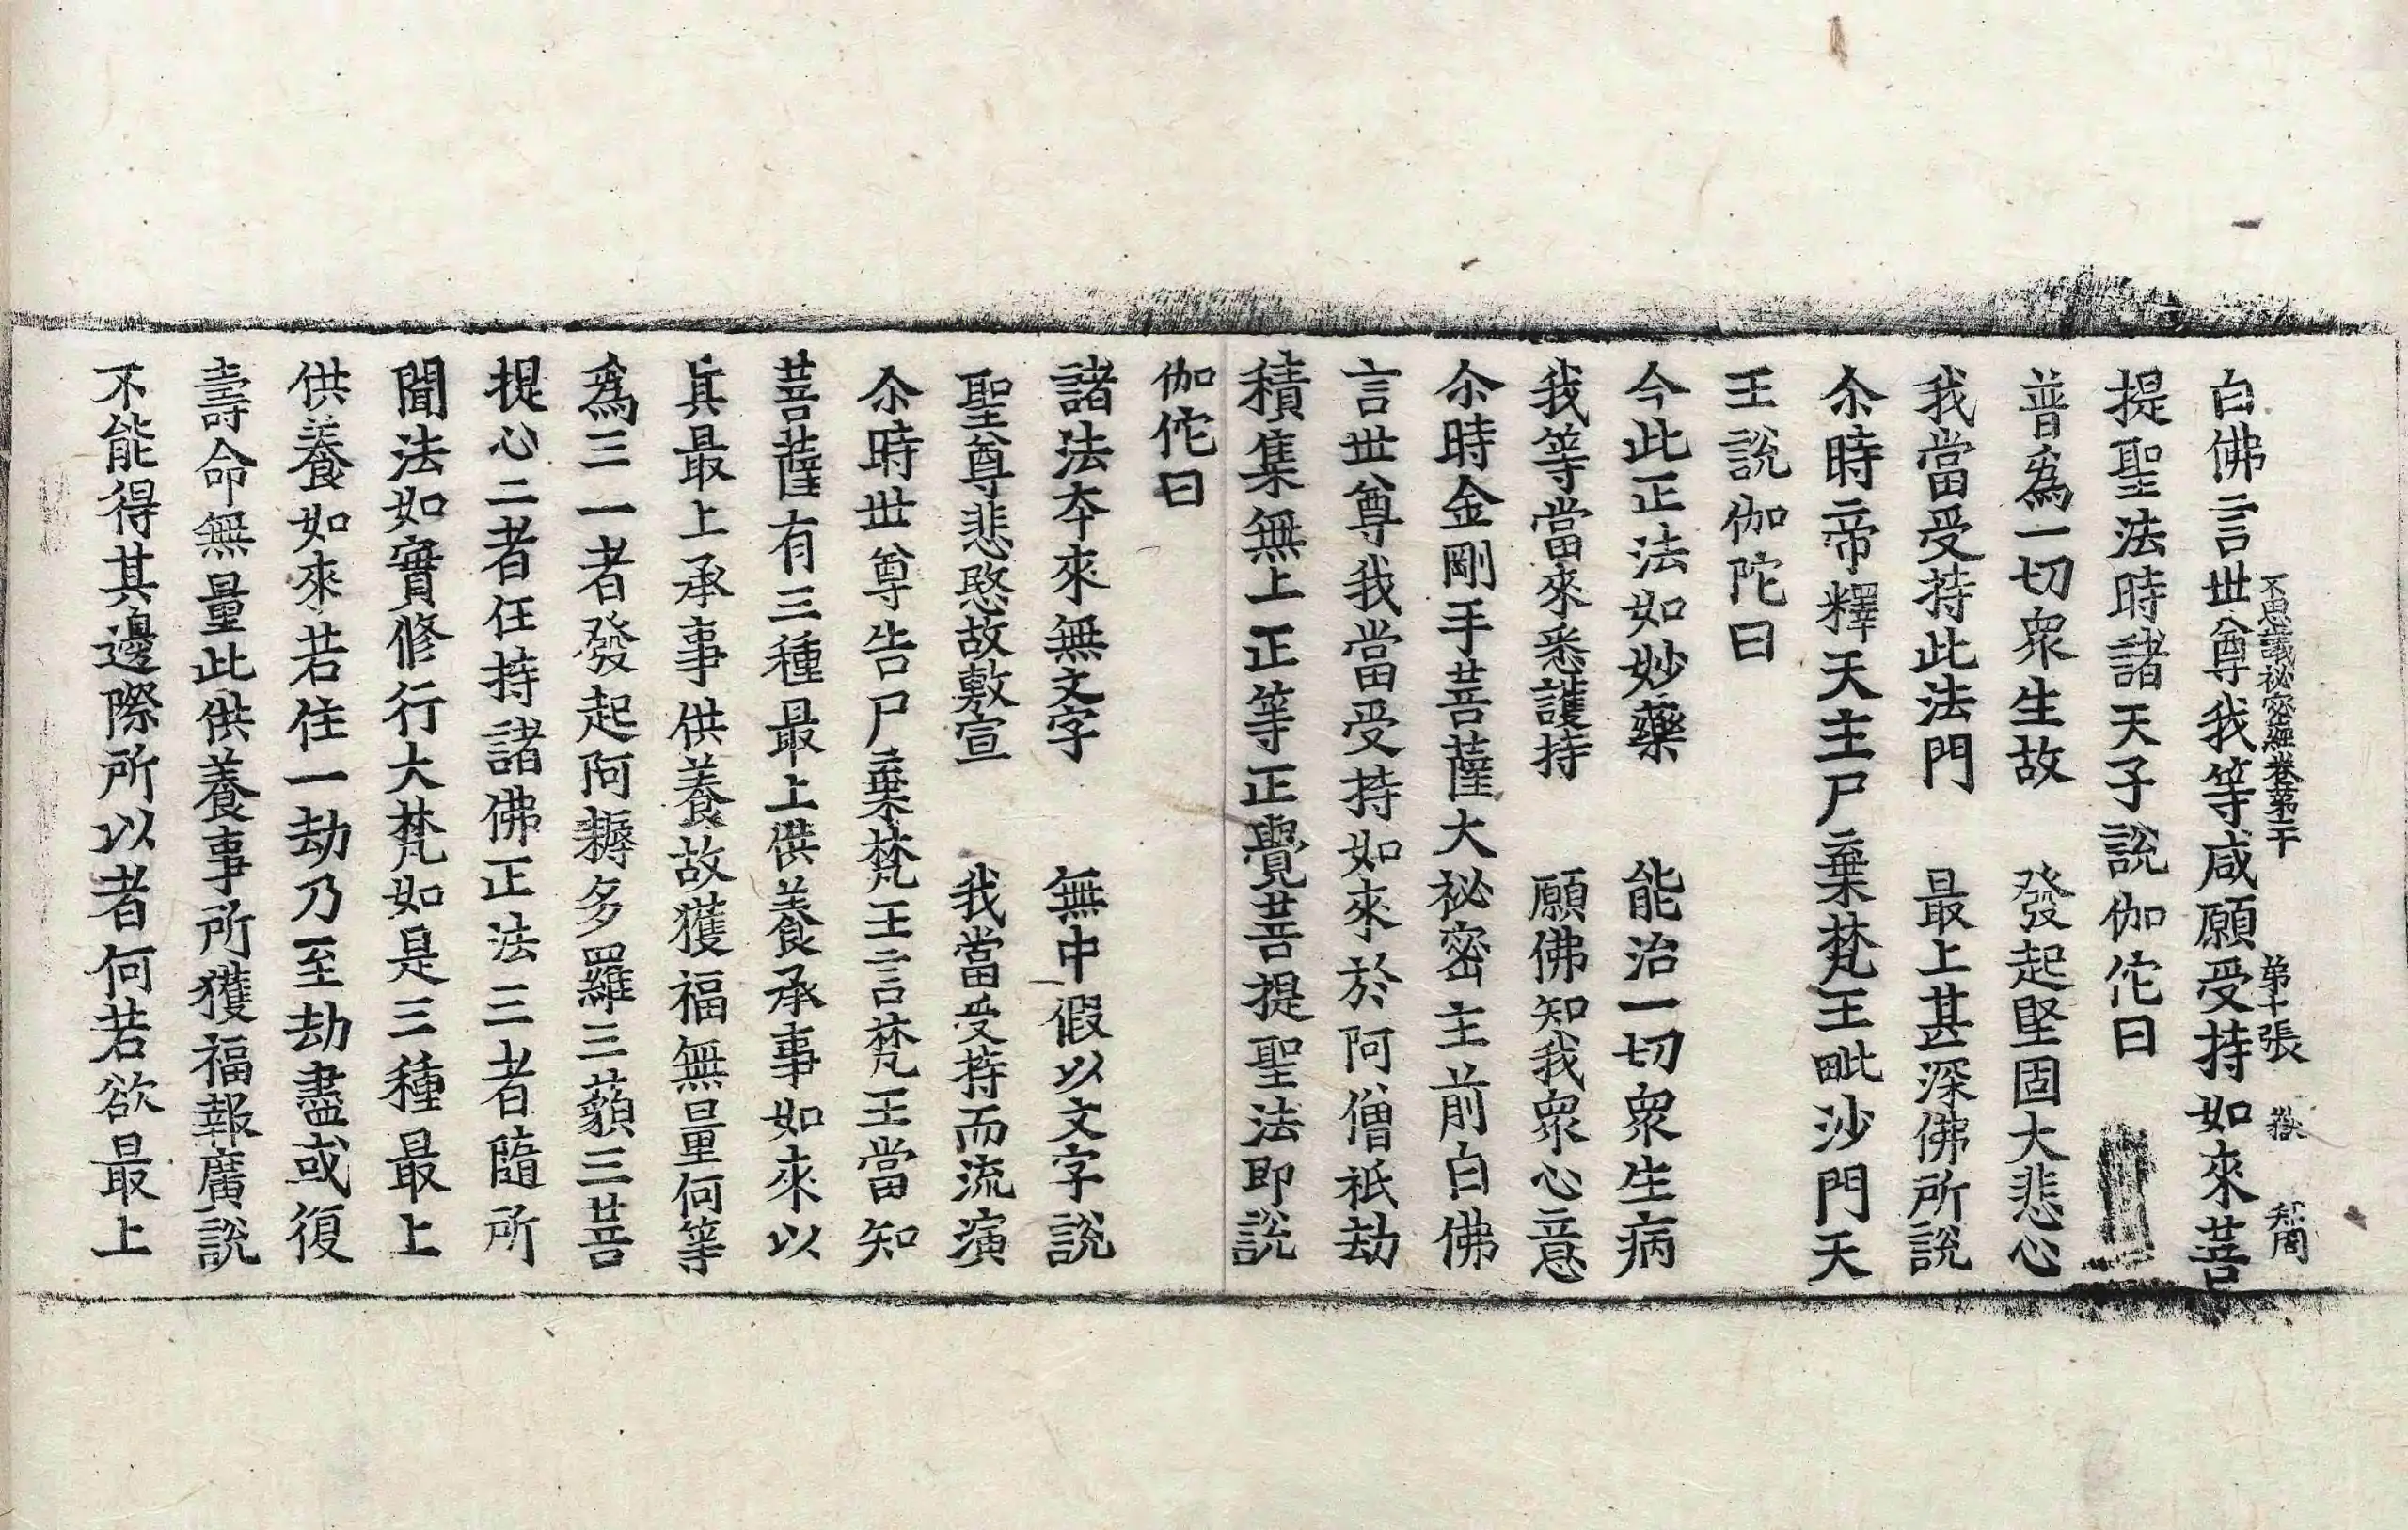 不思議祕密經卷第二十 第十張 嶽
白佛言世尊我等咸願受持如來菩
提聖法時諸天子說伽佗曰
普爲一切衆生故 發起堅固大悲心
我當受持此法門 最上甚深佛所說
尒時帝釋天主尸棄梵王毗沙門天
王說伽陀曰
今此正法如妙藥 能治一切衆生病
我等當來悉護持 願佛知我衆心意
尒時金剛手菩薩大祕密主前白佛
言世尊我當受持如來於阿僧祇劫
積集無上正等正覺菩提聖法即說
伽佗曰
諸法夲來無文字 無中假以文字說
聖尊悲愍故敷宣 我當受持而流演
尒時世尊告尸棄梵王言梵王當知
菩薩有三種最上供養承事如來以
眞最上承事供養故獲福無量何等
爲三一者發起阿耨多羅三藐三菩
提心二者任持諸佛正法三者隨所
聞法如實修行大梵如是三種最上
供養如來若住一劫乃至劫盡或復
壽命無量此供養事所獲福報廣說
不能得其邊際所以者何若欲最上